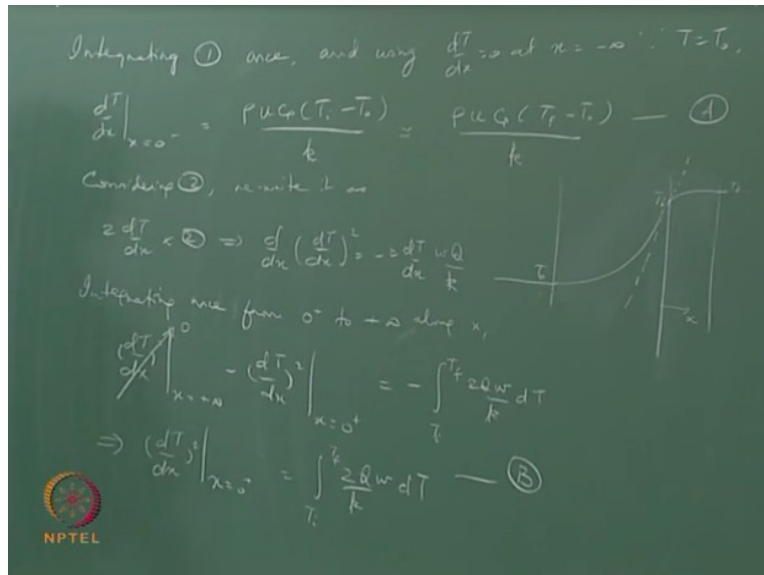 Integrating ① once, and using dT/dx = 0 at x = -∞ ∵ T = T₀,
dT/dx |ₓ₌₀⁻ = ρ u Cp (Tᵢ - T₀) / k ≃ ρ u Cp (T_f - T₀) / k — Ⓐ
Considering ②, re-write it as
2 dT/dx × ② ⇒ d/dx (dT/dx)² = -2 dT/dx wQ/k
Integrating once from 0⁺ to +∞ along x,
(dT/dx)² |ₓ₌₊∞ → 0 - (dT/dx)² |ₓ₌₀⁺ = - ∫_Tᵢ^T_f 2Qw/k dT
⇒ (dT/dx)² |ₓ₌₀⁺ = ∫_Tᵢ^T_f 2Q/k w dT — Ⓑ
T₀
Tᵢ
T_f
x
NPTEL